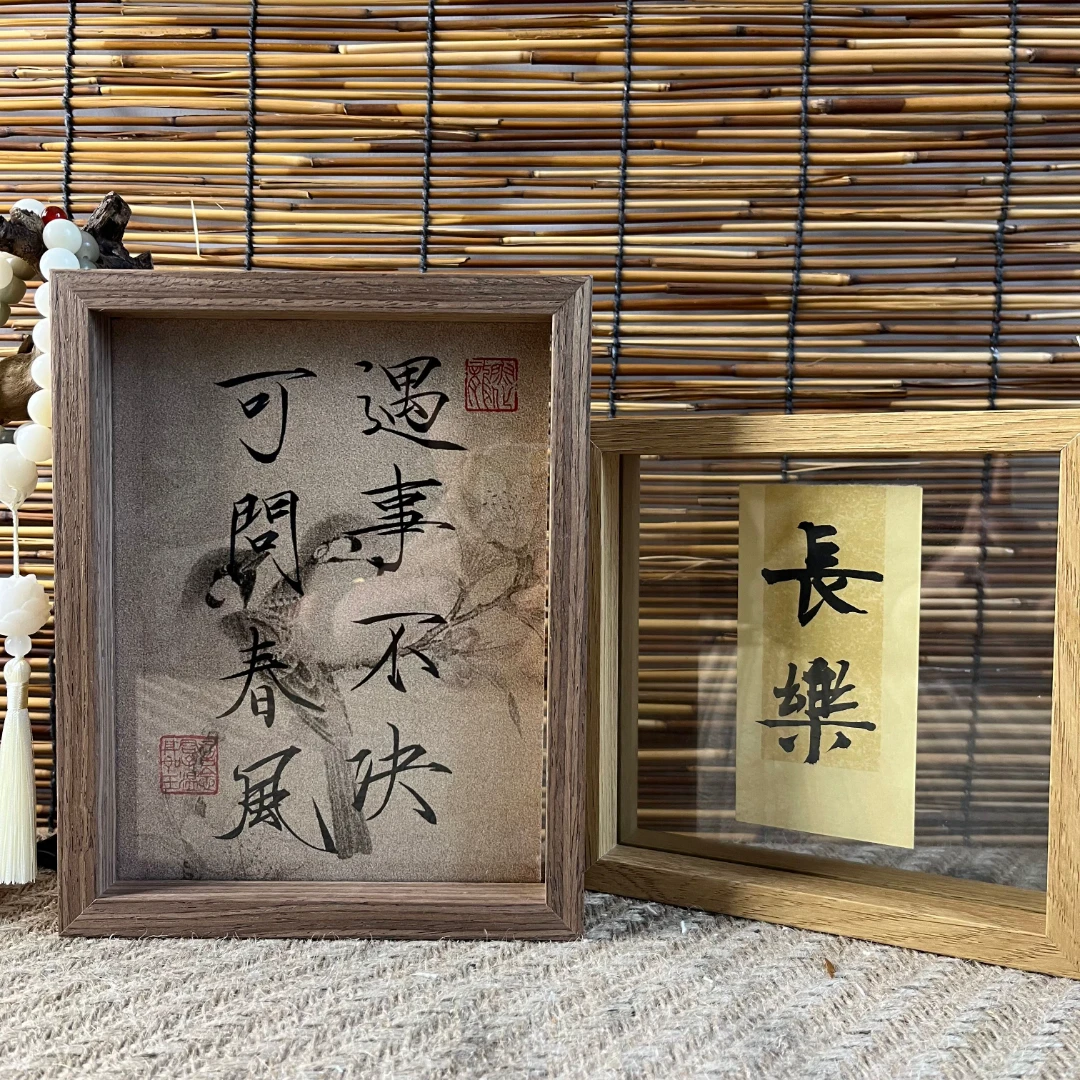 遇事不決
可問春風
長樂